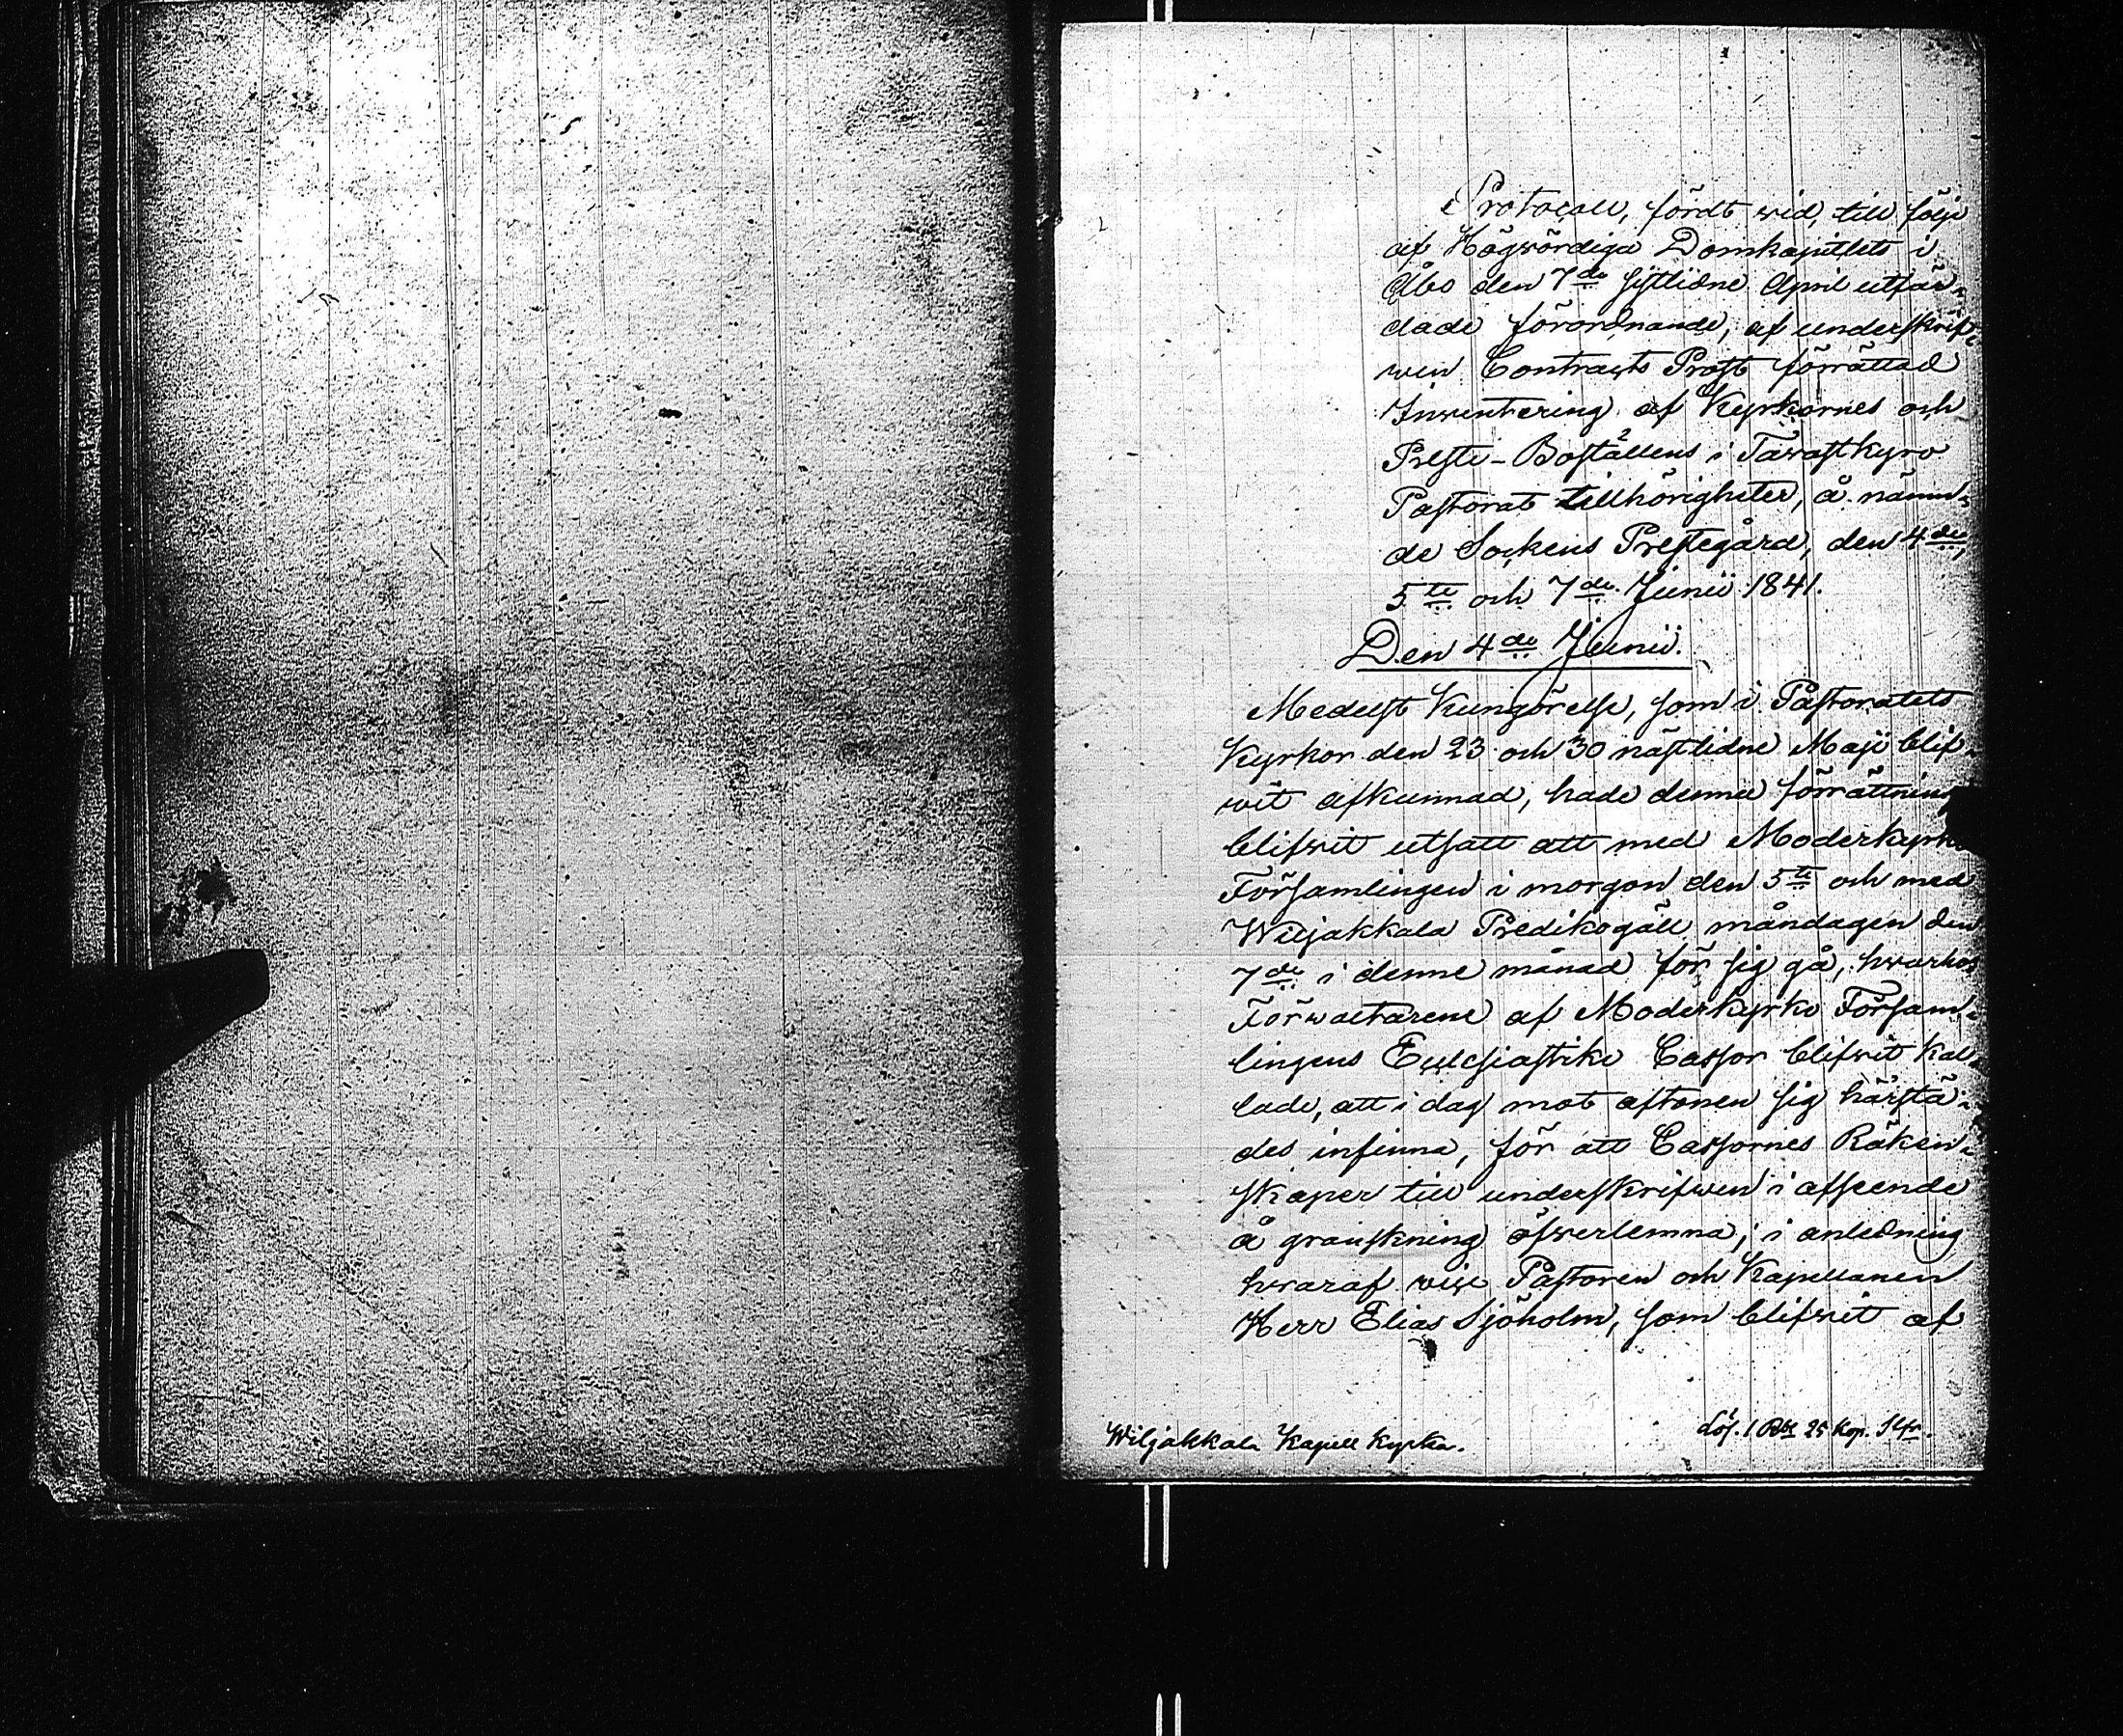 Protocoll, fördt wid, till följe
af Högwördiga Domkapitlets i
Åbo den 7de sistlidne April utfär-
dade förordnande, af underskrif-
wen Contracts Prost förrättad
Inwentering af Kyrkornes och
Preste-Boställens i Tawastkyro
Pastorat tillhörigheter, å nämn-
de Sockens Prestegård, den 4de,
5te och 7de Junii 1841.
Den 4de Junii.
Medelst Kungörelse, som i Pastoratets
Kyrkor den 23 och 30 nästlidne Maji blif-
wit afkunnad, hade denne förrättning
blifwit utsatt att med Moderkyrko
Församlingen i morgon den 5te och med
Wiljakkala Predikogäll måndagen den
7de i denne månad för sig gå, hwarhos
Förwaltarene af Moderkyrko Försam-
lingens Ecclesiastike Cassor blifwit kal-
lade, att i dag mot aftonen sig härstä-
des infinna, för att Cassornes Räken-
skaper till underskrifwen i afseende
å granskning öfwerlemna; i anledning
hwaraf wice Pastoren och Kapellanen
Herr Elias Sjöholm, som blifwit af
Lös. 1 Rbl 25 kop. Slfr.
Wiljakkala Kapell kyrka.